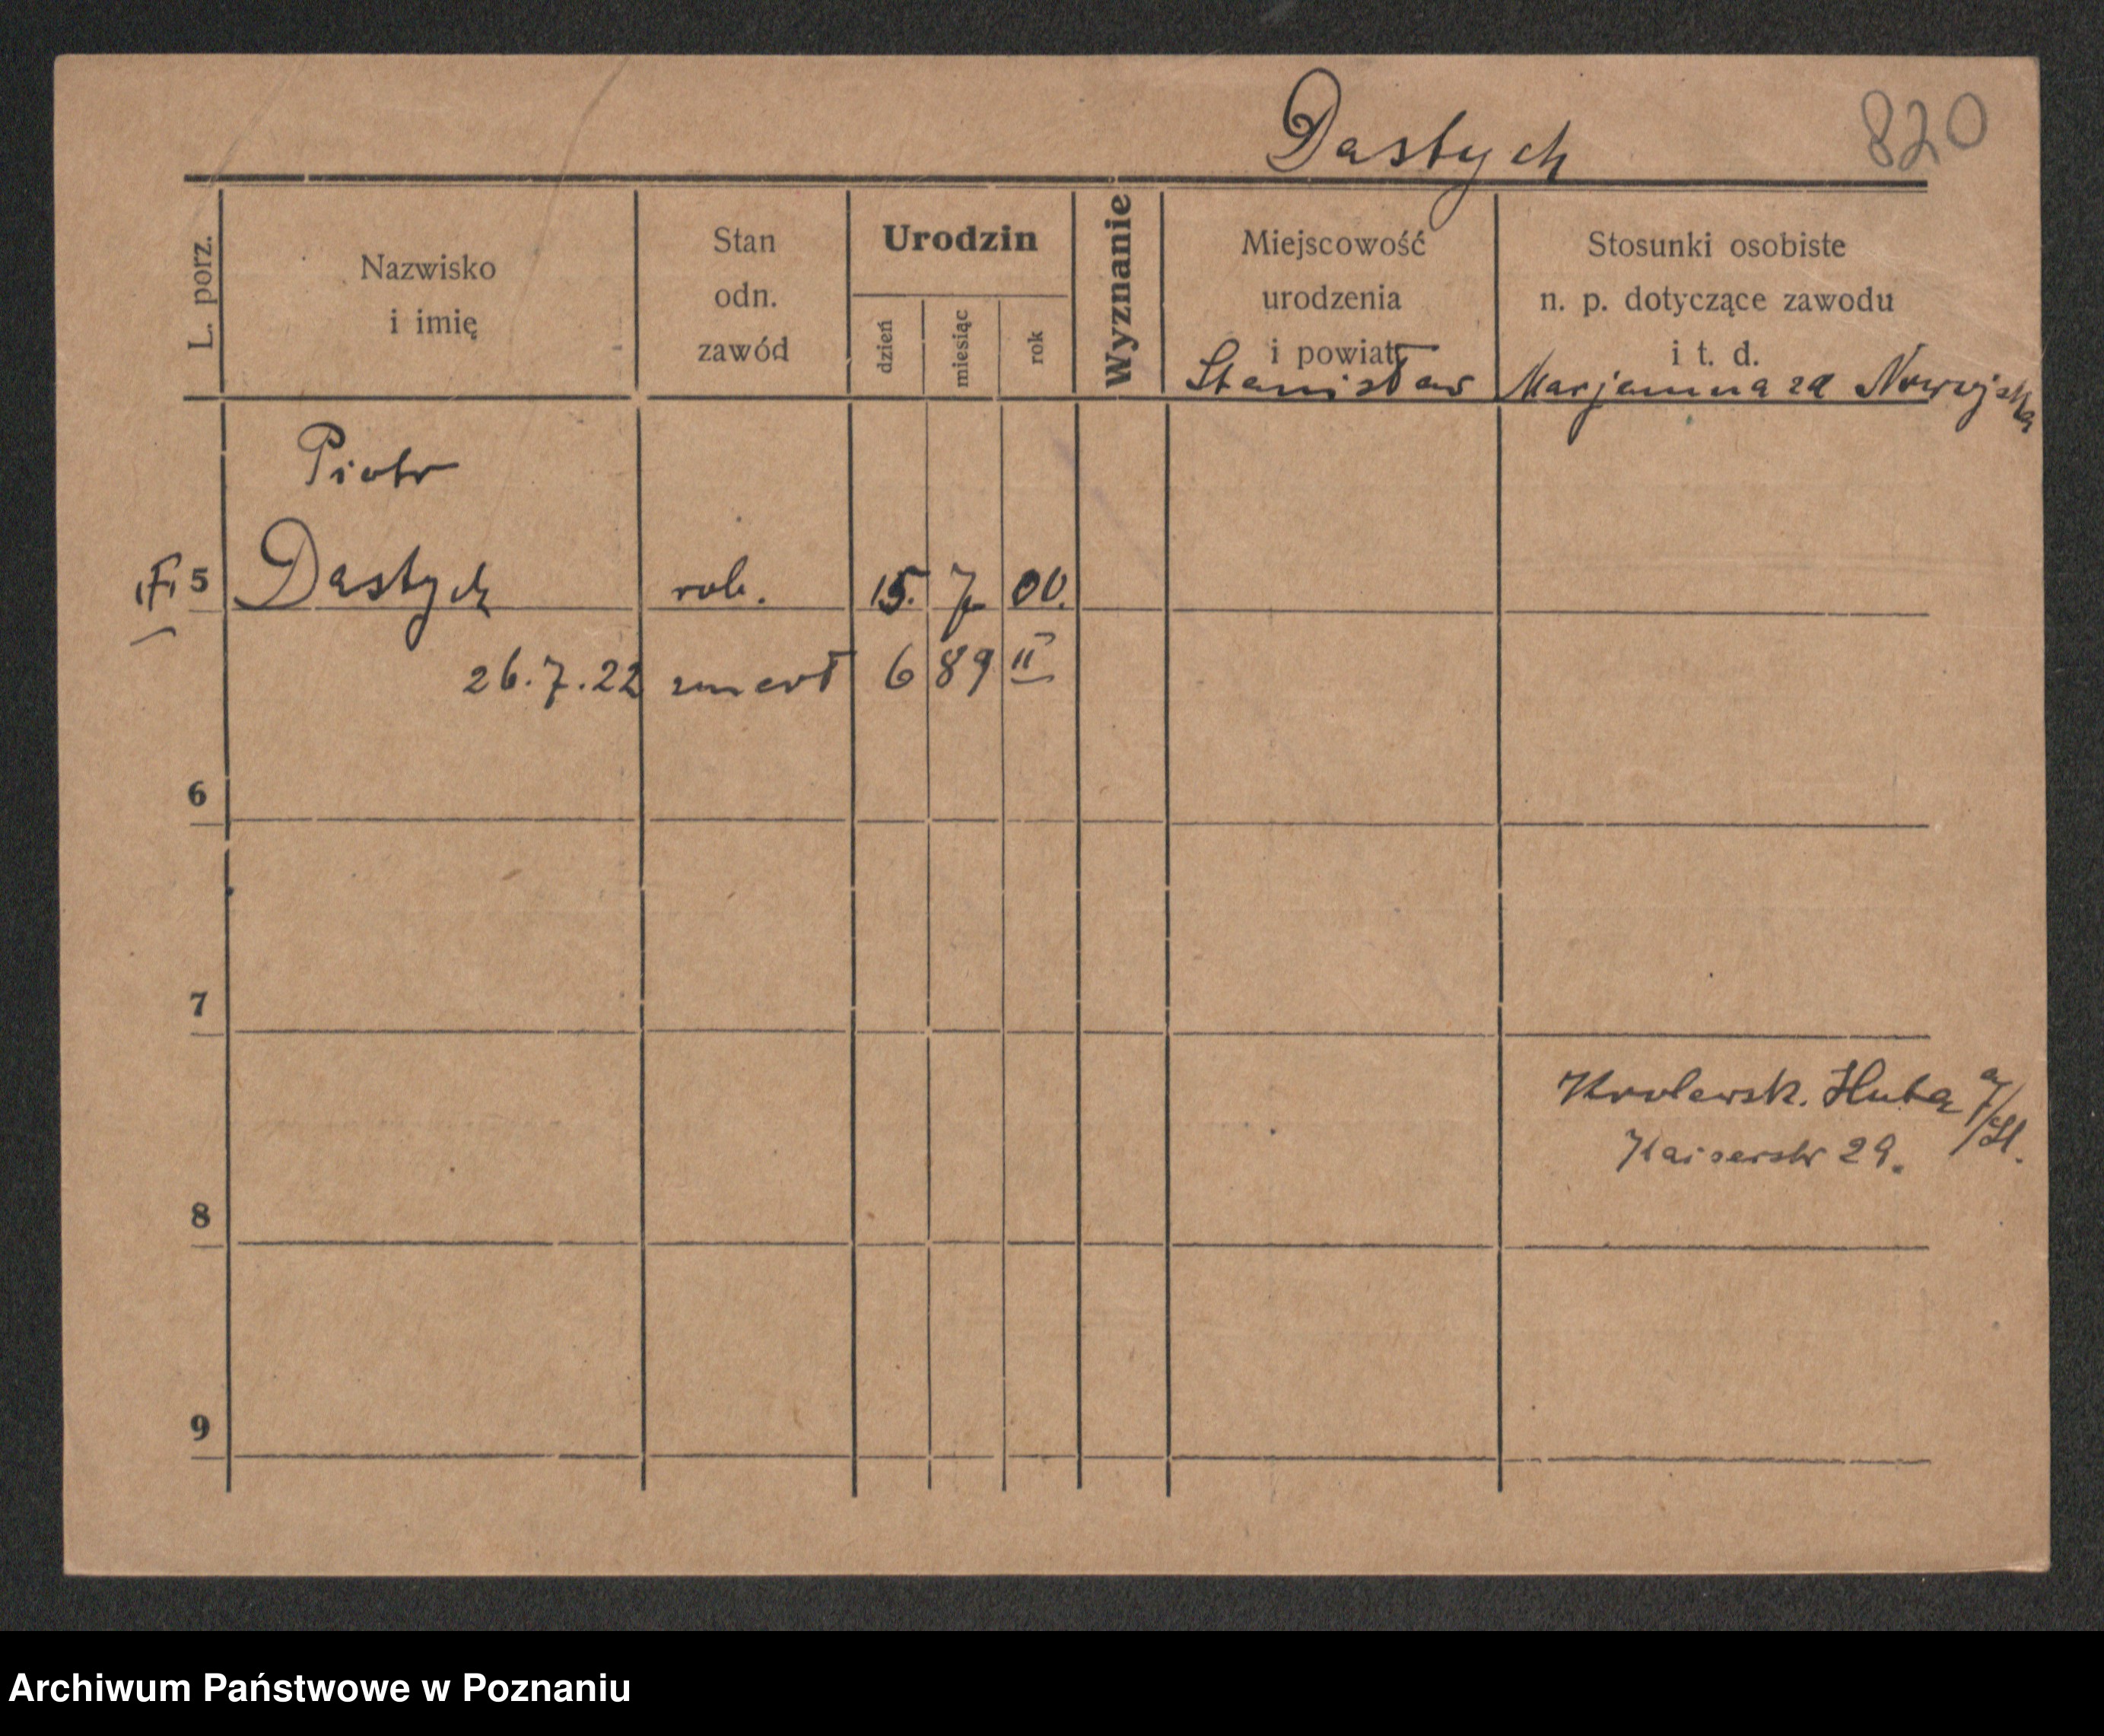 Dastych
820
L. porz.
Nazwisko
i imię
Stan
odn.
zawód
Urodzin
dzień
miesiąc
rok
Wyznanie
Miejscowość
urodzenia
i powiat
Stosunki osobiste
n. p. dotyczące zawodu
i t. d.
Stanisław Marjanna zd Nowojska
Piotr
5 Dastych rob. 15. 7 00.
26.7.22 zmarł 6 89 II
6
7
Krolewsk. Huta
Kaiserstr 29.
8
9
Archiwum Państwowe w Poznaniu